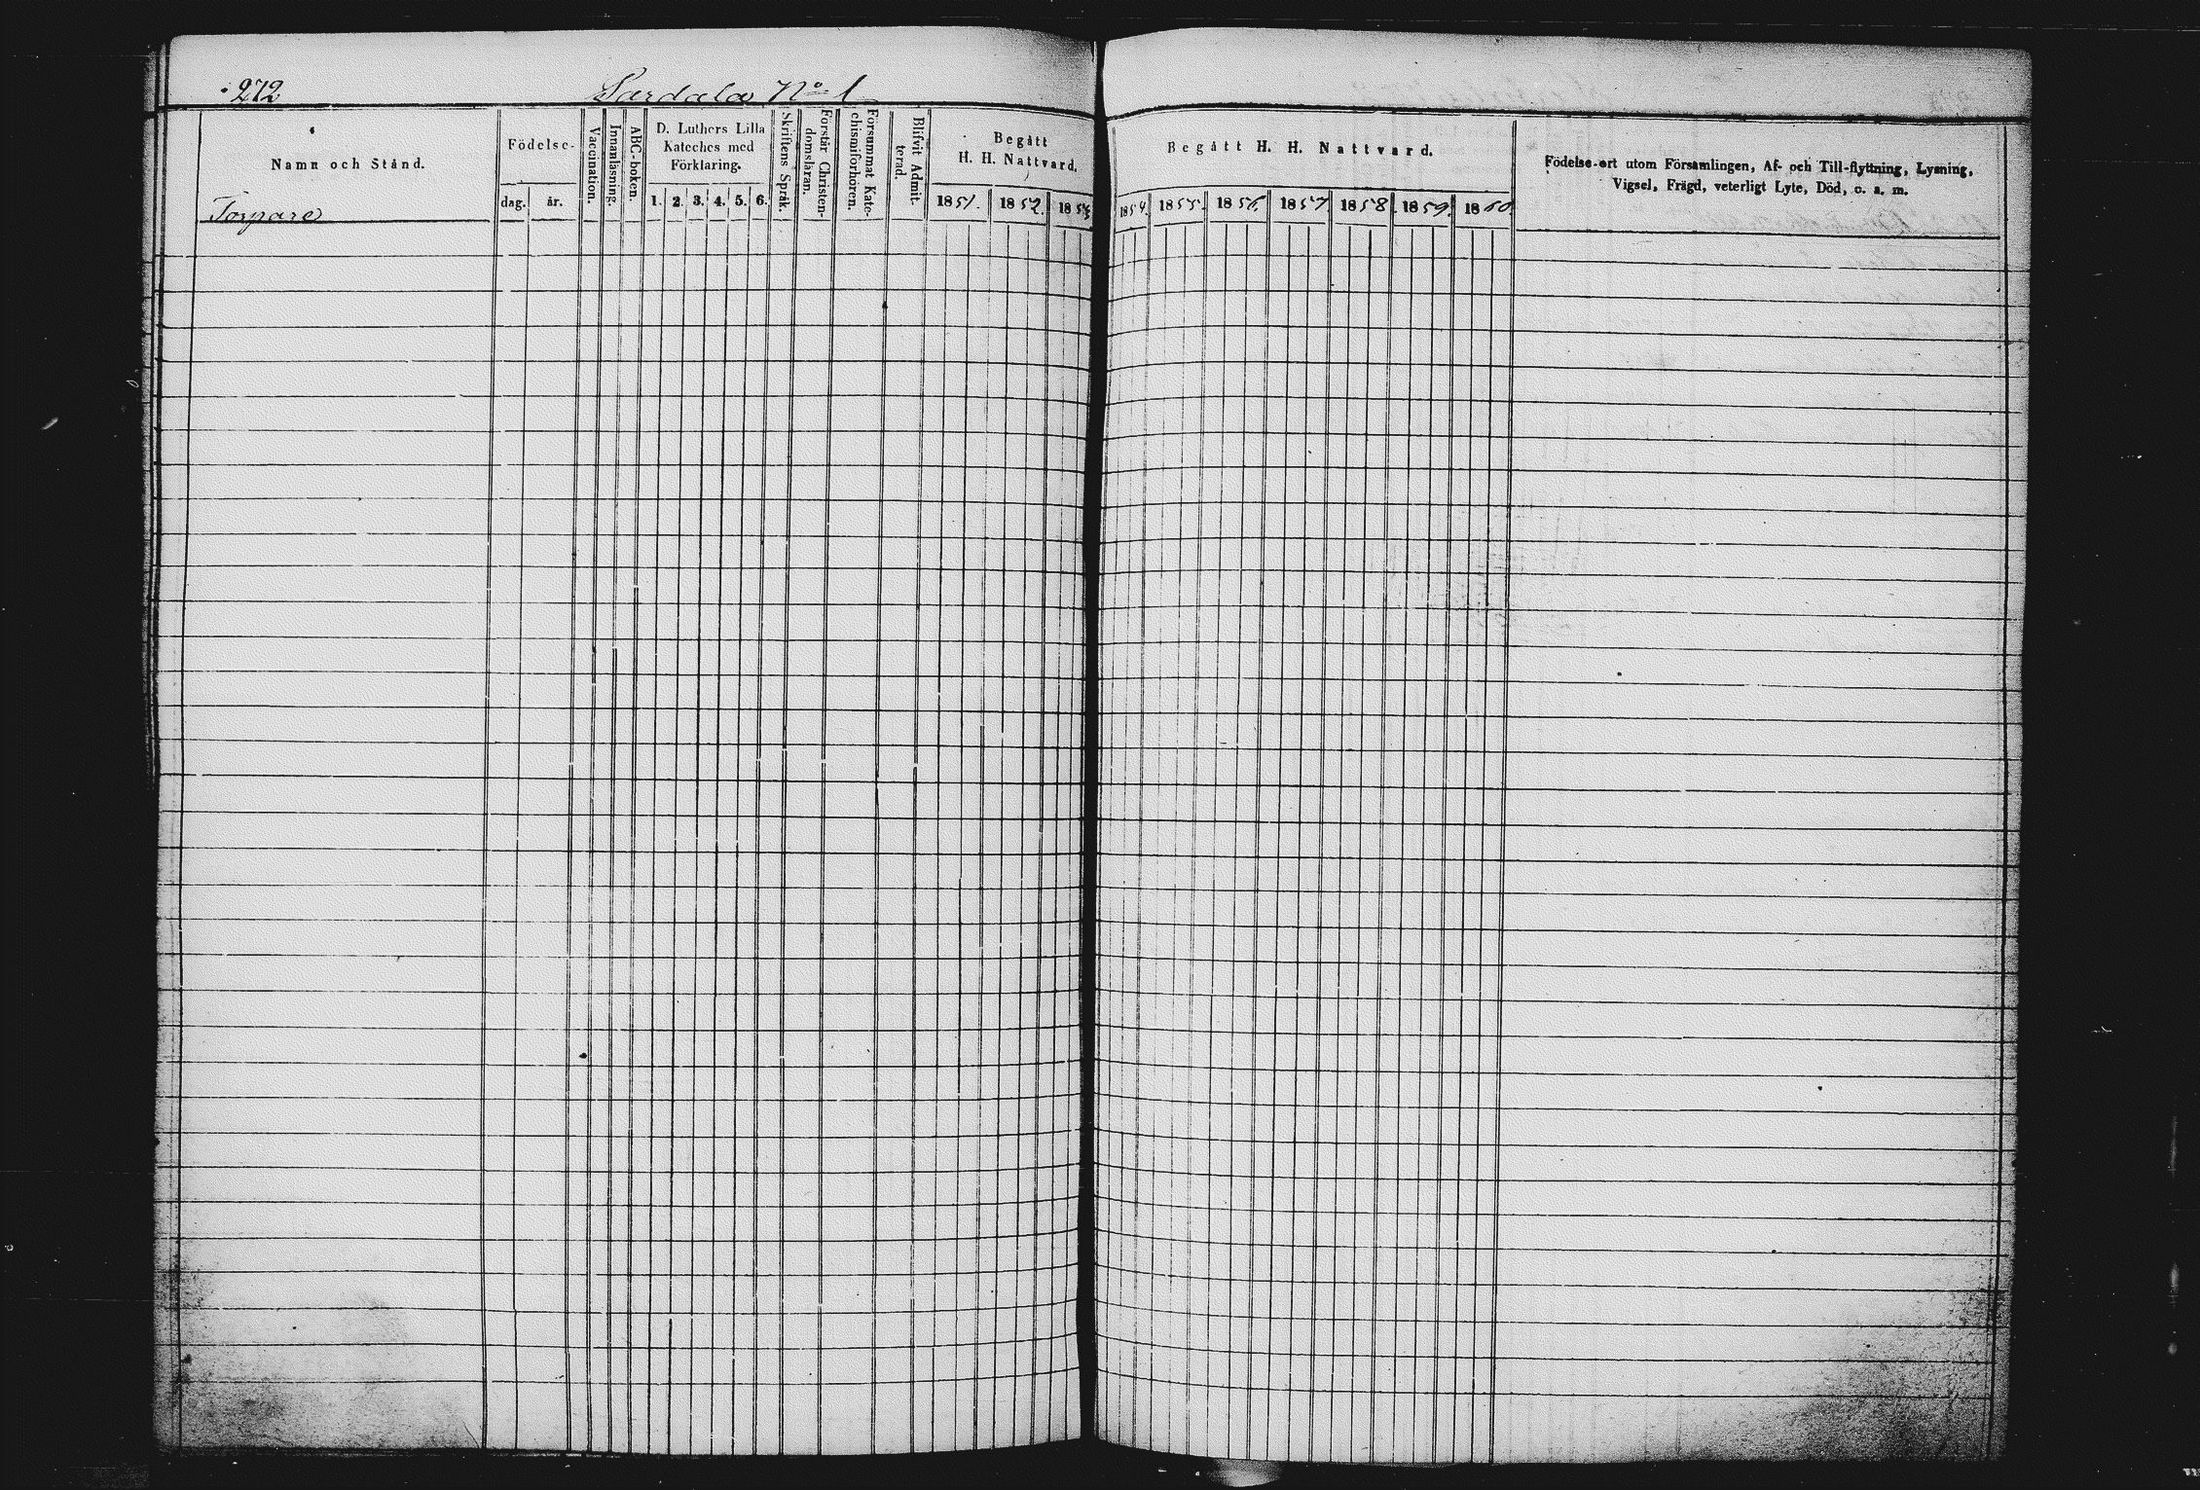 272 Sardala No 1
Namn och Stånd.
Torpare
Födelse-
dag. år.
Vaccination.
Innanläsning.
ABC-boken.
D. Luthers Lilla
Kateches med
Förklaring.
1. 2. 3. 4. 5. 6.
Skriftens Språk.
Förstår Christen-
domsläran.
Försummat Kate-
chismiförhören.
Blifvit Admit-
terad.
Begått
H. H. Nattvard.
1851. 1852. 1853
Begått H. H. Nattvard.
1854. 1855. 1856. 1857. 1858 1859. 1860.
Födelse-ort utom Församlingen, Af- och Till-flyttning, Lysning,
Vigsel, Frägd, veterligt Lyte, Död, o. s. m.